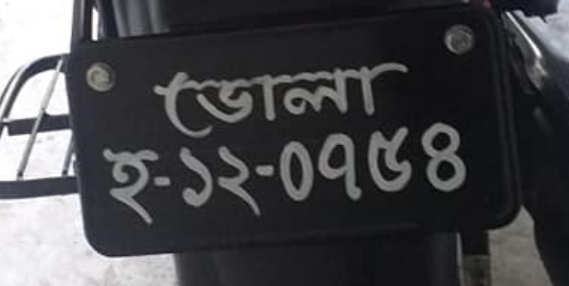 ভোলা
হ-১২-০৭৫৪